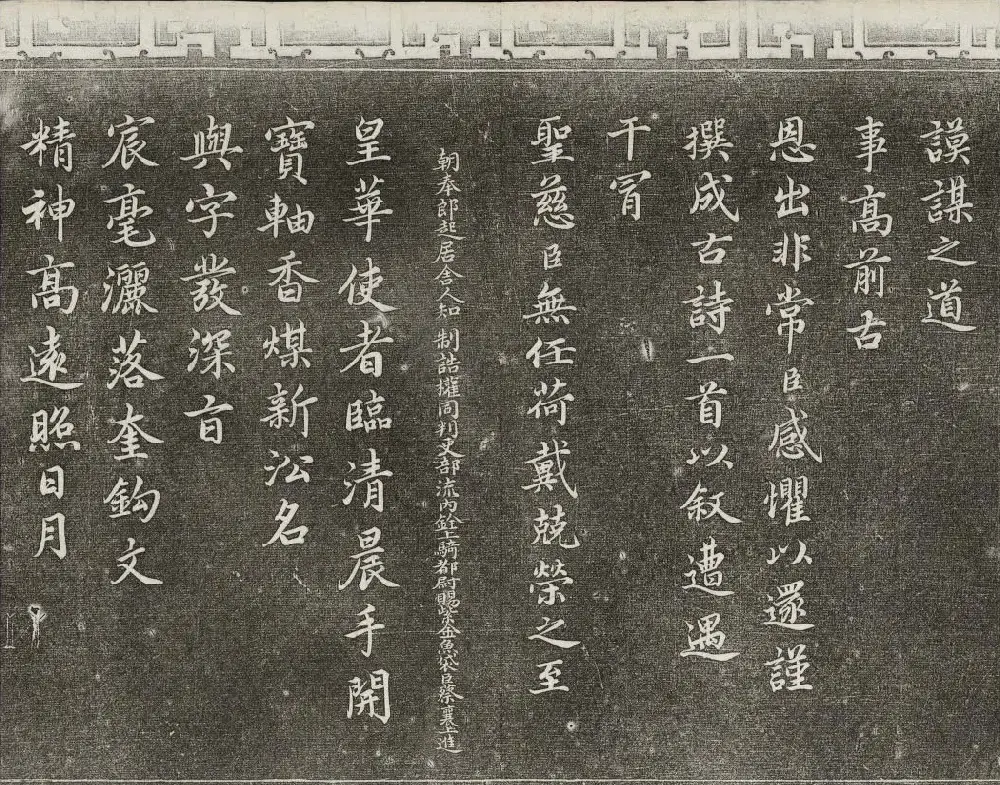 謨謀之道
事高前古
恩出非常臣感懼以還謹
撰成古詩一首以叙遭遇
干冒
聖慈臣無任荷戴兢榮之至
朝奉郎起居舍人知制誥權同判吏部流內銓上騎都尉賜紫金魚袋臣蔡襄上進
皇華使者臨清晨手開
寶軸香煤新沿名
與字發深旨
宸毫灑落奎鈎文
精神高遠照日月